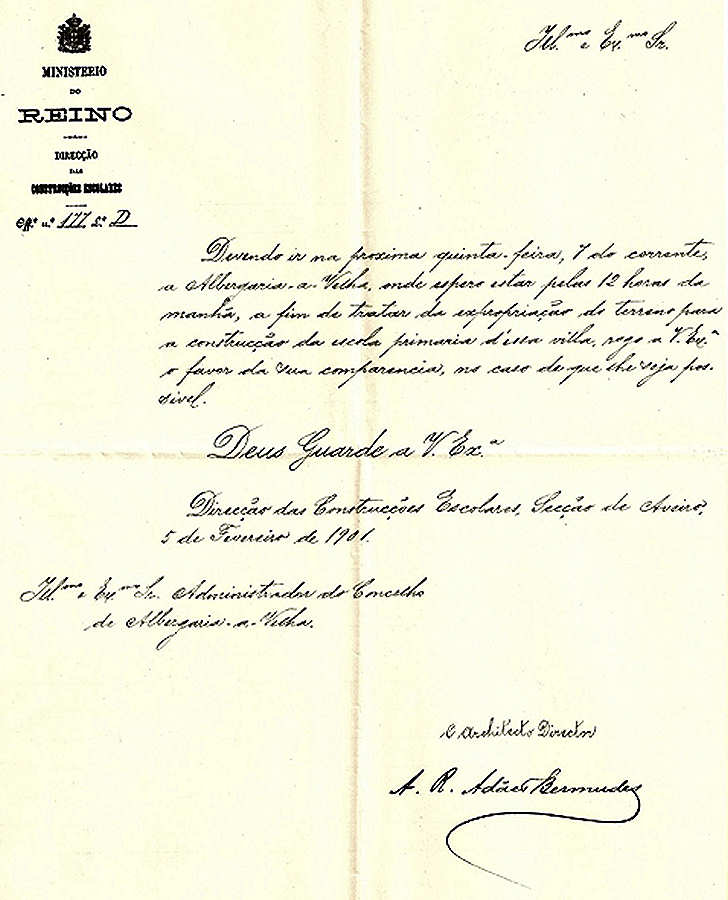 MINISTERIO
DO
REINO
DIRECÇÃO
DAS
CONSTRUCÇÕES ESCOLARES
Off.º n.º 177 L.º D
Ill.mo e Ex.mo Sr.
Devendo ir na proxima quinta-feira, 7 do corrente,
a Albergaria-a-Velha, onde espero estar pelas 12 horas da
manhã, a fim de tratar da expropriação do terreno para
a construcção da escola primaria d'essa villa, rogo a V. Ex.ª
o favor da sua comparencia, no caso de que lhe seja pos-
sivel.
Deus Guarde a V. Ex.ª
Direcção das Construcções Escolares, Secção de Aveiro,
5 de Fevereiro de 1901.
Ill.mo e Ex.mo Sr. Administrador do Concelho
de Albergaria-a-Velha.
O Architecto Director
A. R. Adães Bermudes